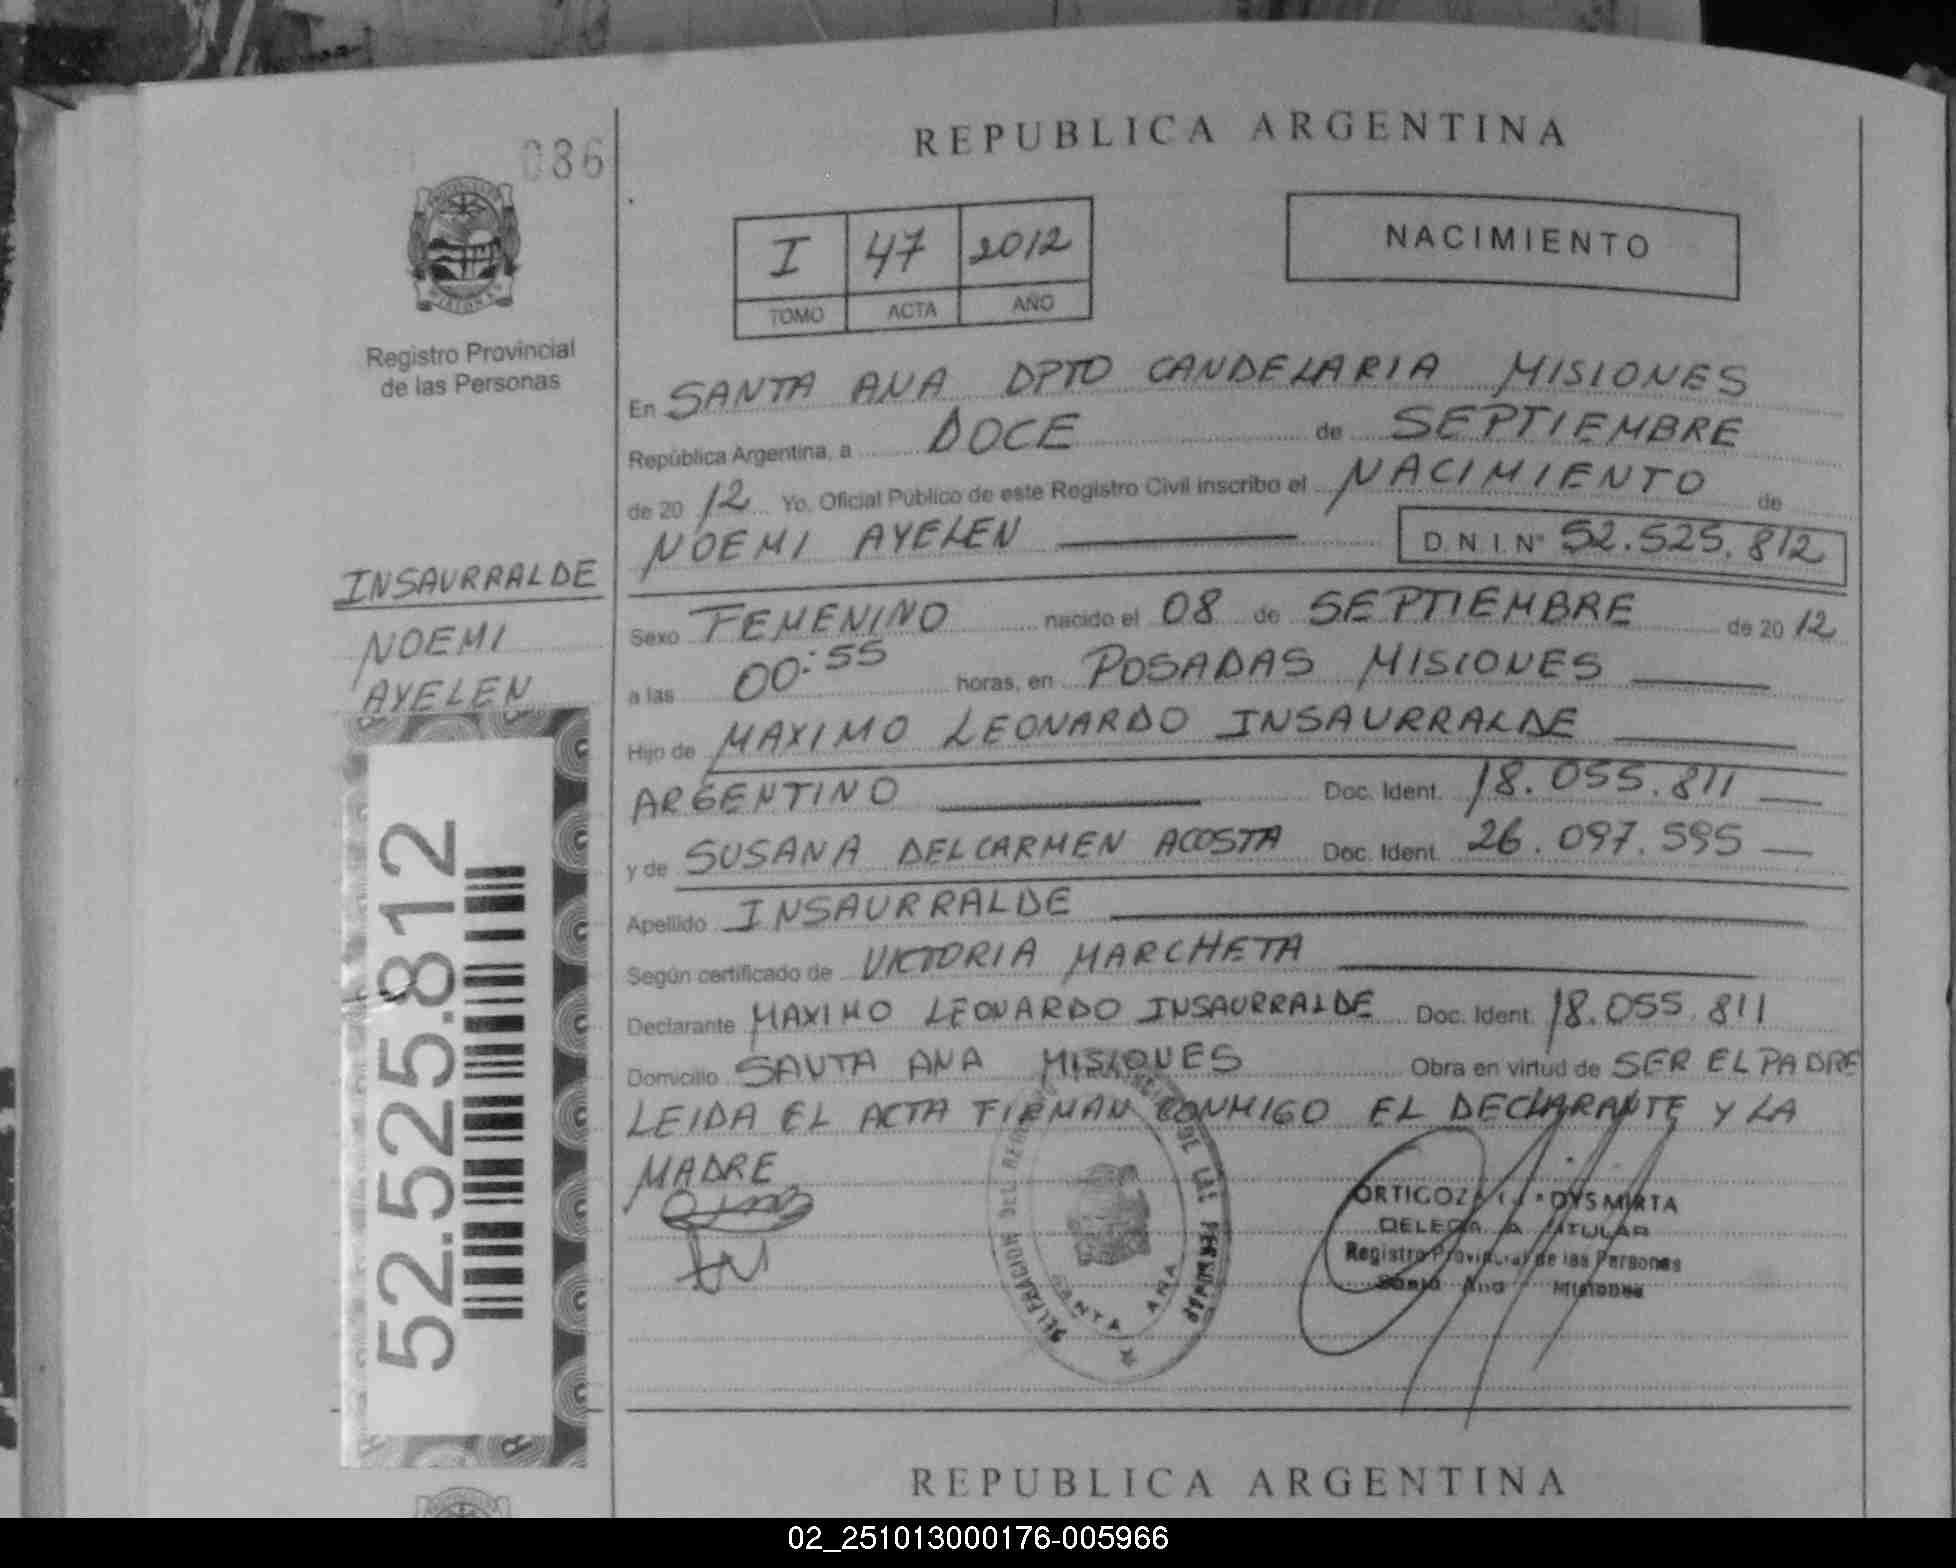 086
REPUBLICA ARGENTINA
I 47 2012
TOMO ACTA AÑO
NACIMIENTO
Registro Provincial
de las Personas
En SANTA ANA DPTO CANDELARIA MISIONES
República Argentina, a DOCE de SEPTIEMBRE
de 20 12 Yo, Oficial Público de este Registro Civil inscribo el NACIMIENTO de
NOEMI AYELEN D.N.I.Nº 52.525.812
INSAURRALDE
NOEMI
AYELEN
Sexo FEMENINO nacido el 08 de SEPTIEMBRE de 20 12
a las 00:55 horas, en POSADAS MISIONES
Hijo de MAXIMO LEONARDO INSAURRALDE
ARGENTINO Doc. Ident. 18.055.811
y de SUSANA DEL CARMEN ACOSTA Doc. Ident. 26.097.595
Apellido INSAURRALDE
Según certificado de VIKTORIA MARCHETA
Declarante MAXIMO LEONARDO INSAURRALDE Doc. Ident. 18.055.811
Domicilio SANTA ANA MISIONES Obra en virtud de SER EL PADRE
LEIDA EL ACTA FIRMAN CONMIGO EL DECLARANTE Y LA
MADRE
52.525.812
DE LAS PERSONAS
SANTA ANA
ORTIGOZA MIRTA
DELEGADA TITULAR
Registro Provincial de las Personas
Santa Ana Misiones
REPUBLICA ARGENTINA
02_251013000176-005966